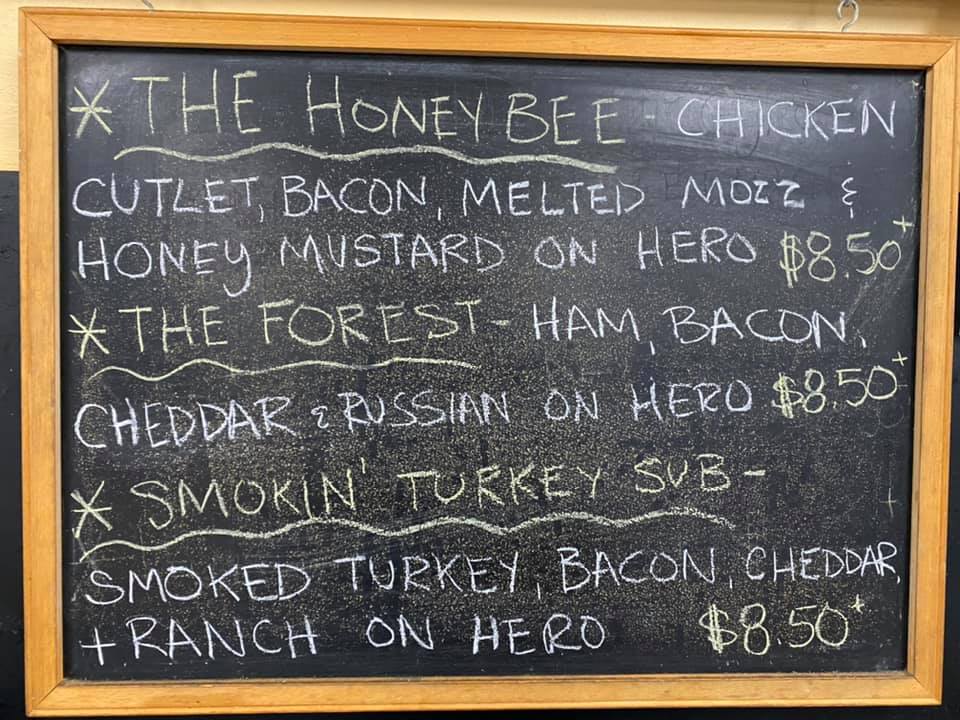 * THE HONEY BEE - CHICKEN
CUTLET, BACON, MELTED MOZZ &
HONEY MUSTARD ON HERO $8.50+
* THE FOREST - HAM, BACON,
CHEDDAR & RUSSIAN ON HERO $8.50+
* SMOKIN' TURKEY SUB -
SMOKED TURKEY, BACON, CHEDDAR,
+ RANCH ON HERO $8.50+